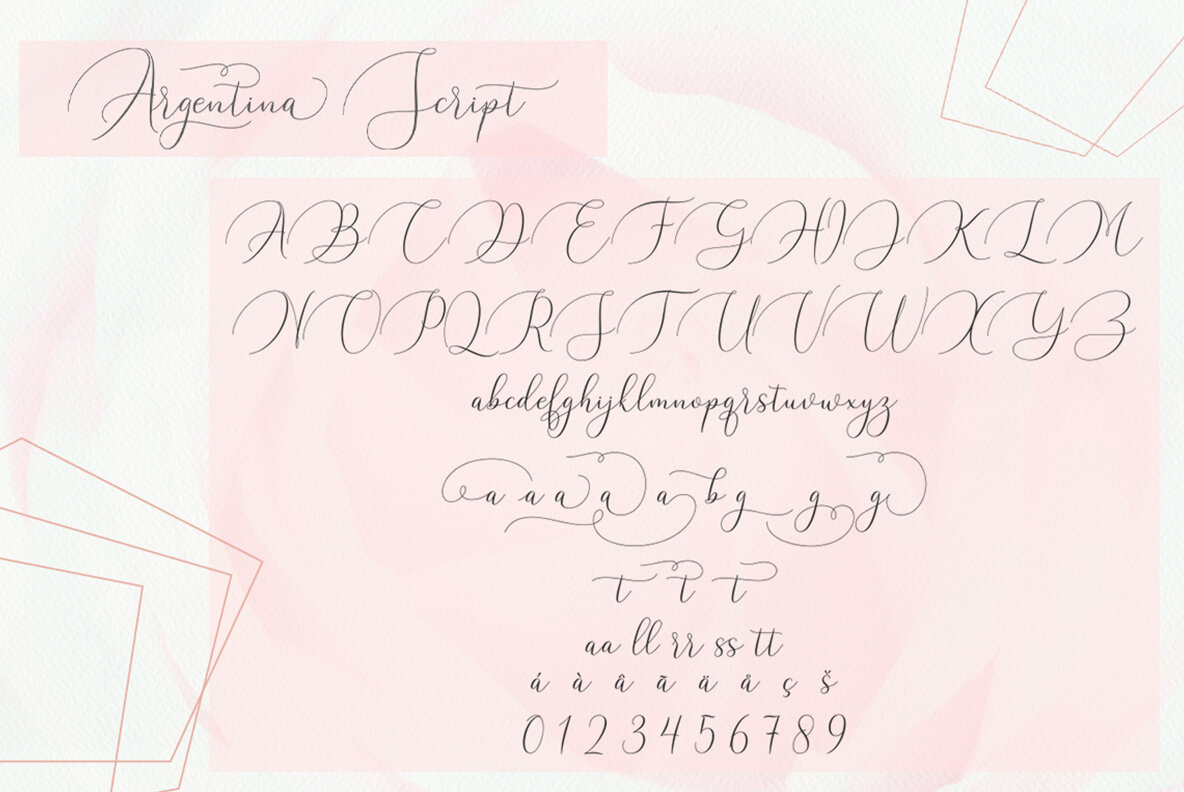 Argentina Script
A B C D E F G H I J K L M
N O P Q R S T U V W X Y Z
abcdefghijklmnopqrstuvwxyz
a a a a a b g g g
t t t
aa ll rr ss tt
á à â ã ä å ç š
0 1 2 3 4 5 6 7 8 9